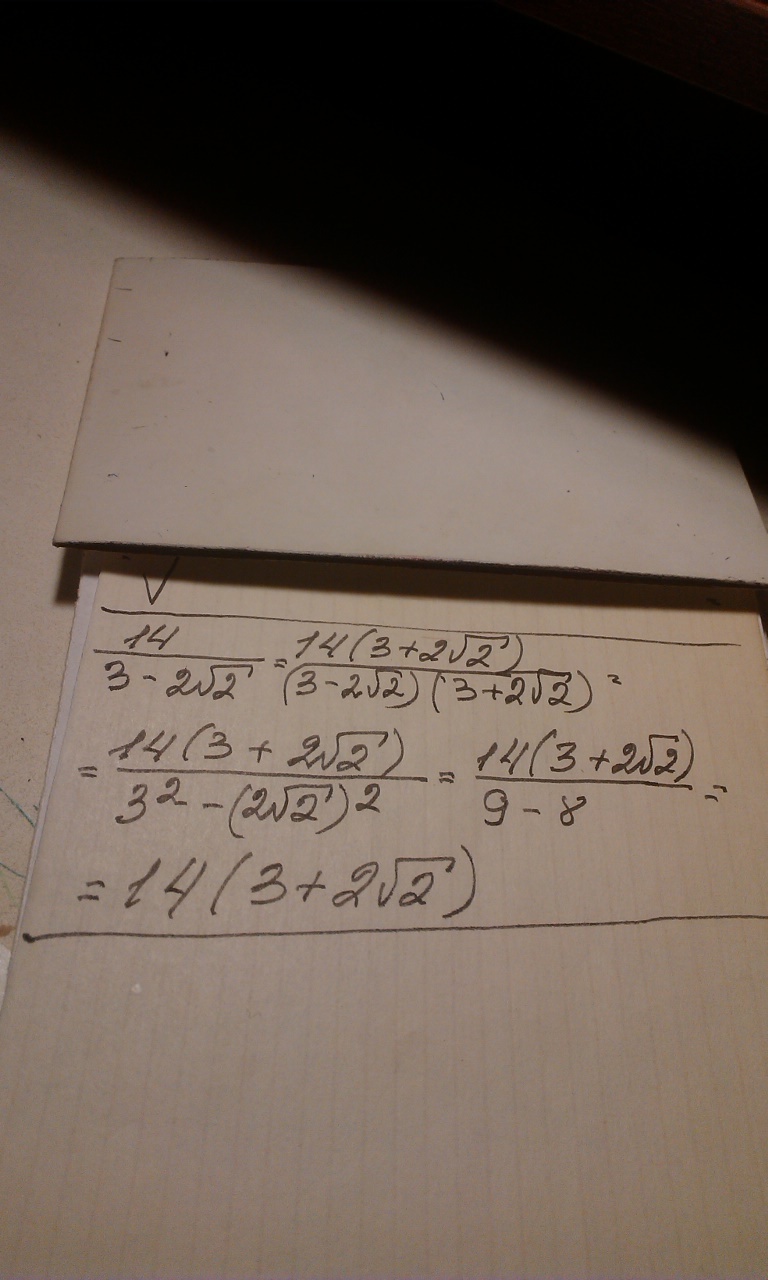 √
14/(3 - 2√2) = 14(3 + 2√2)/((3 - 2√2)(3 + 2√2)) =
= 14(3 + 2√2)/(3² - (2√2)²) = 14(3 + 2√2)/(9 - 8) =
= 14(3 + 2√2)